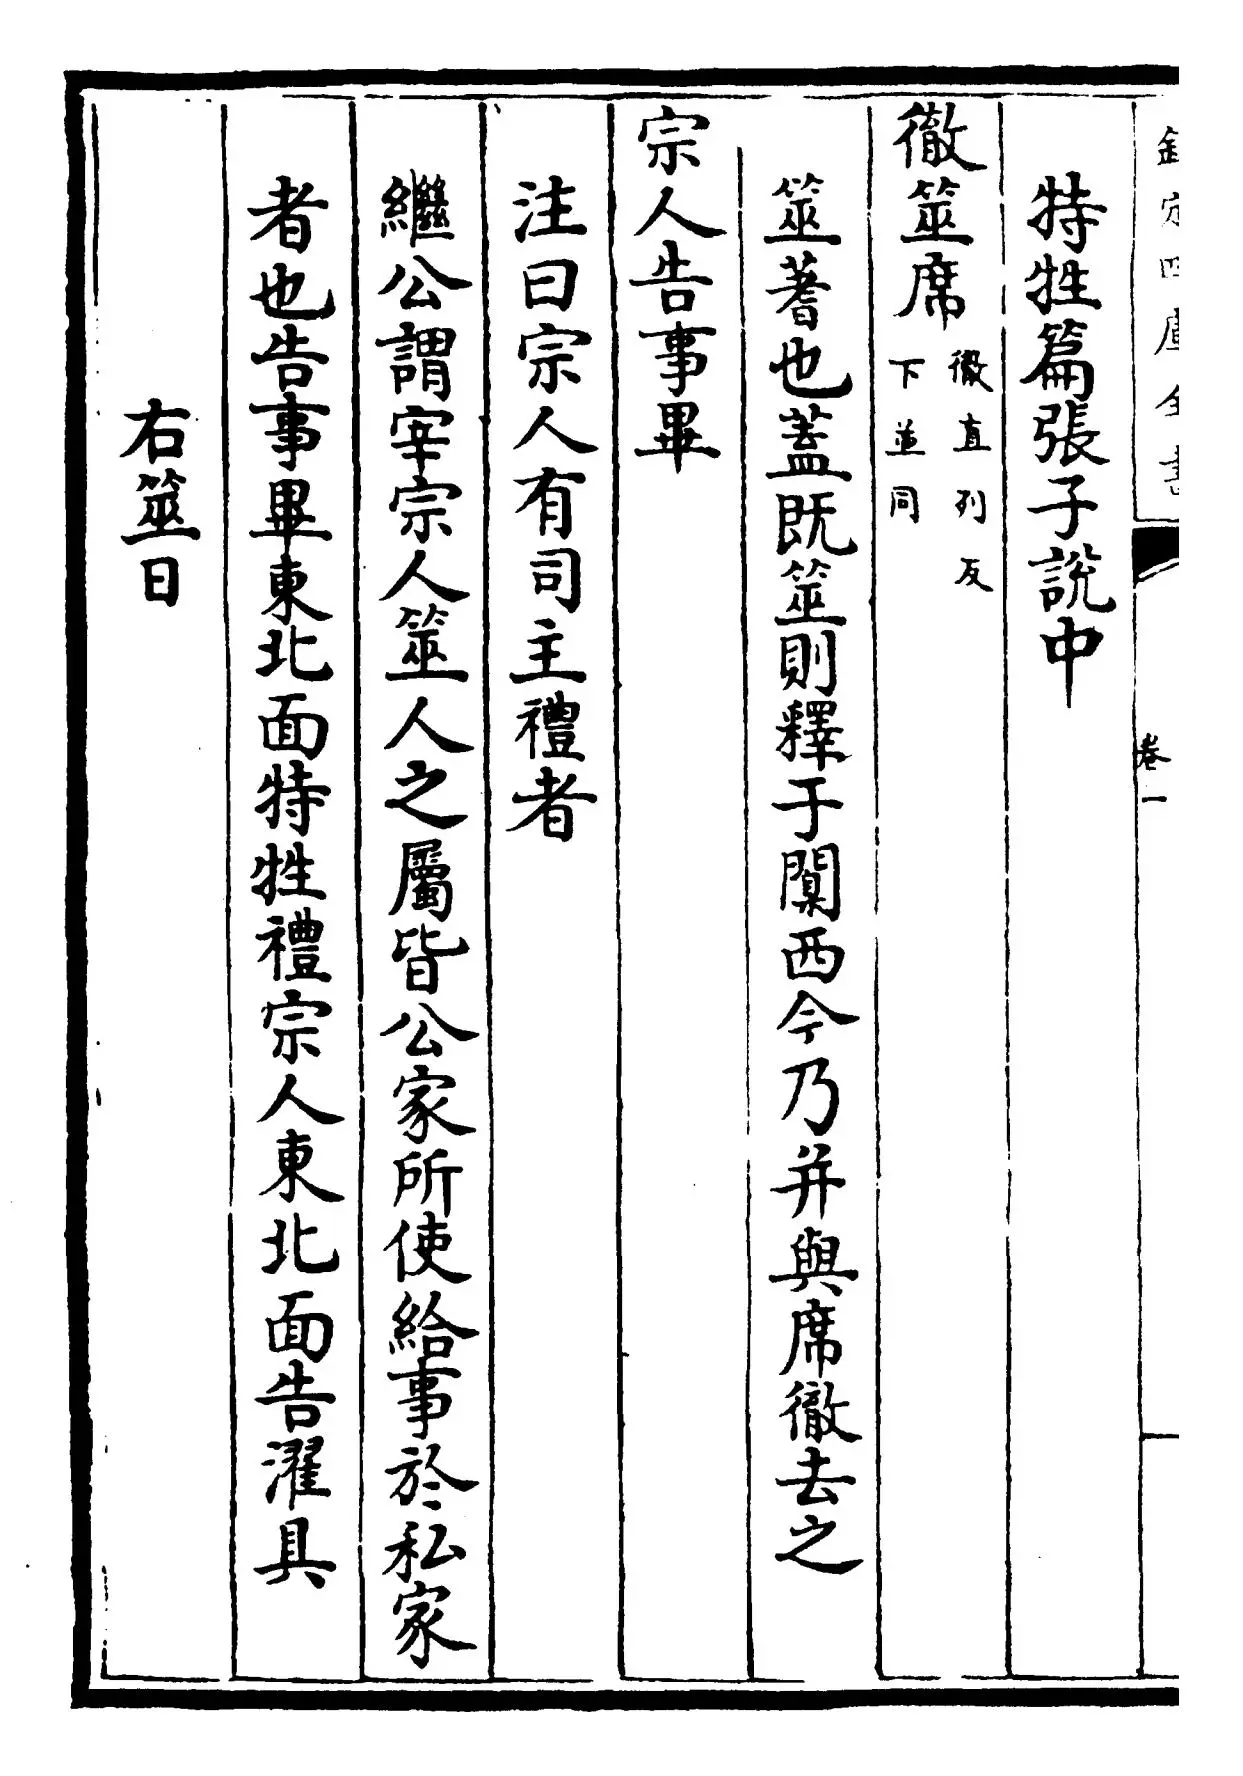 欽定四庫全書
卷一
特牲篇張子說中
徹筮席徹直列反下並同
筮蓍也蓋既筮則釋于闑西今乃并與席徹去之
宗人告事畢
注曰宗人有司主禮者
繼公謂宰宗人筮人之屬皆公家所使給事於私家
者也告事畢東北面特牲禮宗人東北面告濯具
右筮日